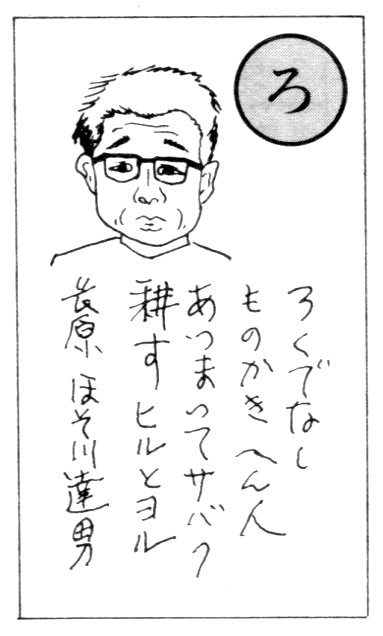 ろ
ろくでなし
ものかきへん人
あつまってサバク
耕すヒルとヨル
ほそ川達男